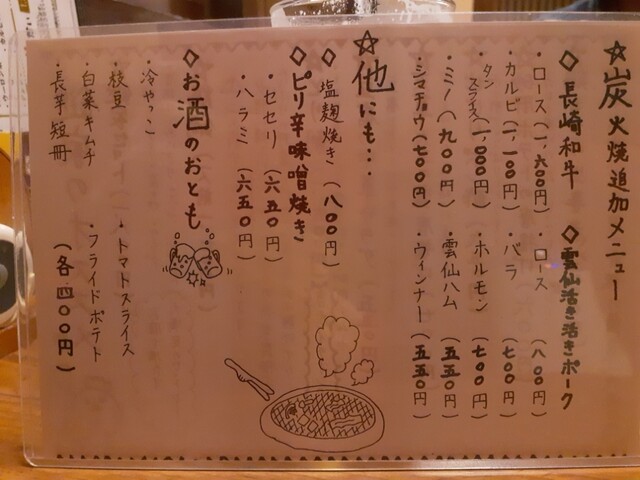 ☆炭火焼追加メニュー
◇長崎和牛
・ロース（一,六〇〇円）
・カルビ（一,一〇〇円）
・タンスライス（一,〇〇〇円）
・ミノ（九〇〇円）
・シマチョウ（七〇〇円）
◇雲仙活き活きポーク
・ロース（八〇〇円）
・バラ（七〇〇円）
・ホルモン（七〇〇円）
・雲仙ハム（五五〇円）
・ウィンナー（五五〇円）
☆他にも…
◇塩麹焼き（八〇〇円）
◇ピリ辛味噌焼き
・セセリ（六五〇円）
・ハラミ（六五〇円）
◇お酒のおとも
・冷やっこ
・枝豆
・白菜キムチ
・長芋短冊
・トマトスライス
・フライドポテト
（各四〇〇円）